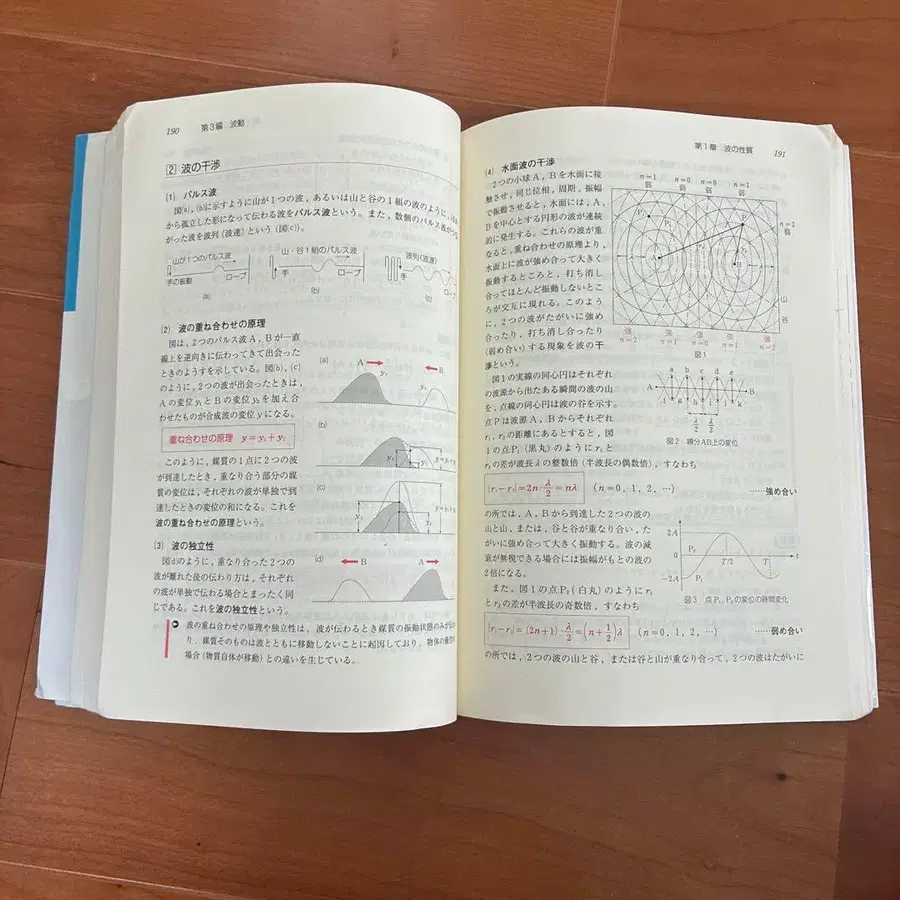 190 第3編 波動
2 波の干渉
(1) パルス波
図(a), (b)に示すように山が1つの波, あるいは山と谷の1組の波のように,
から孤立した形になって伝わる波をパルス波という。また, 数個のパルス波が
がった波を波列(波連)という(図(c))。
山が1つのパルス波
手の振動
ロープ
(a)
山・谷1組のパルス波
手
ロープ
(b)
波列(波連)
手
ロープ
(c)
(2) 波の重ね合わせの原理
図は, 2つのパルス波A, Bが一直
線上を逆向きに伝わってきて出会った
ときのようすを示している。図(b), (c)
のように, 2つの波が出会ったときは,
Aの変位y₁とBの変位y₂を加え合
わせたものが合成波の変位yになる。
重ね合わせの原理 y=y₁+y₂
このように, 媒質の1点に2つの波
が到達したとき, 重なり合う部分の媒
質の変位は, それぞれの波が単独で到
達したときの変位の和になる。これを
波の重ね合わせの原理という。
(a)
A
y₁
B
y₂
(b)
(c)
y₁
(d)
B
A
(3) 波の独立性
図(d)のように, 重なり合った2つの
波が離れた後の伝わり方は, それぞれ
の波が単独で伝わる場合とまったく同
じである。これを波の独立性という。
波の重ね合わせの原理や独立性は, 波が伝わるとき媒質の振動状態のみが
り, 媒質そのものは波とともに移動しないことに起因しており, 物体の
場合(物質自体が移動)との違いを生じている。
第1章 波の性質 191
(4) 水面波の干渉
2つの小球A, Bを水面に接
触させ, 同じ位相, 周期, 振幅
で振動させると, 水面には, A,
Bを中心とする円形の波が連続
的に発生する。これらの波が重
なると, 重ね合わせの原理より,
水面上に波が強め合って大きく
振動するところと, 打ち消し
合ってほとんど振動しないとこ
ろが交互に現れる。このよう
に, 2つの波がたがいに強め
合ったり, 打ち消し合ったり
(弱め合い)する現象を波の干
渉という。
n=1 n=0 n=0 n=1
弱 弱 弱 弱
n=2
弱
A
B
山
谷
強 強 強 強 強
n=2 n=1 n=0 n=1 n=2
図1
図1の実線の同心円はそれぞれ
の波源から出たある瞬間の波の山
を, 点線の同心円は波の谷を示す。
点Pは波源A, Bからそれぞれ
r₁, r₂の距離にあるとすると, 図
1の点P₁(黒丸)のようにr₁と
r₂の差が波長λの整数倍(半波長の偶数倍), すなわち
a b c d e
A B
f g h i j k
λ/2 λ/2
図2 線分AB上の変位
|r₁−r₂|=2n・λ/2=nλ (n=0, 1, 2, …) ……強め合い
の所では, A, Bから到達した2つの波の
山と山, または, 谷と谷が重なり合い, た
がいに強め合って大きく振動する。波の減
衰が無視できる場合には振幅がもとの波の
2倍になる。
2A
P₂
T/2
T
t
−2A
図3 点P₁, P₂の変位の時間変化
また, 図1の点P₂(白丸)のようにr₁
とr₂の差が半波長の奇数倍, すなわち
|r₁−r₂|=(2n+1)・λ/2=(n+1/2)λ (n=0, 1, 2, …) ……弱め合い
の所では, 2つの波の山と谷, または谷と山が重なり合って, 2つの波はたがいに